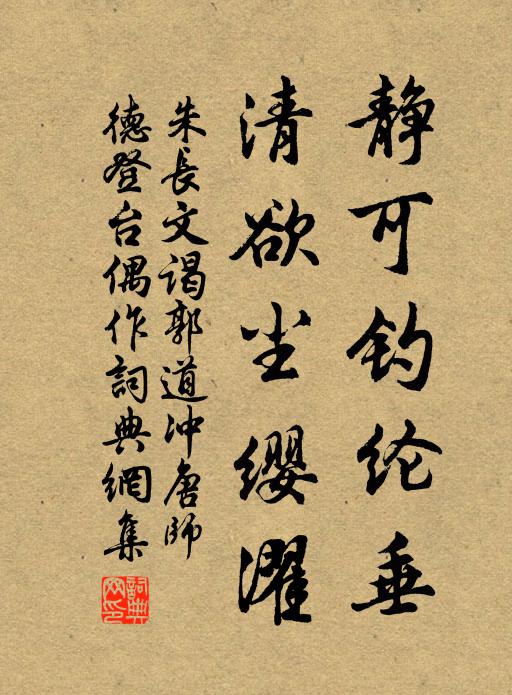 静可钓纶垂
清欲尘缨濯
朱長文谒郭道冲唐師
德登台偶作詞典網集
詞典网印